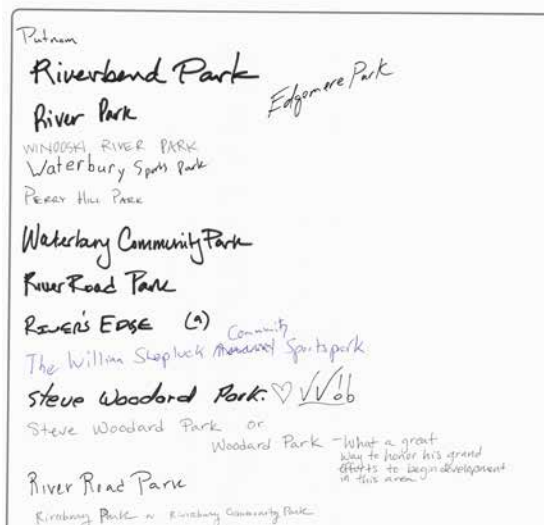 Putnam
Riverbend Park
Edgomere Park
River Park
WINOOSKI RIVER PARK
Waterbury Sports Park
PERRY HILL PARK
Waterbury Community Park
River Road Park
RIVER'S EDGE (a)
Community
The William Shepluck Sportspark
Steve Woodard Park. ♡ ✓✓
Steve Woodard Park or
Woodard Park - What a great
way to honor his grand
efforts to begin development
in this area
River Road Park
Park or Community Park